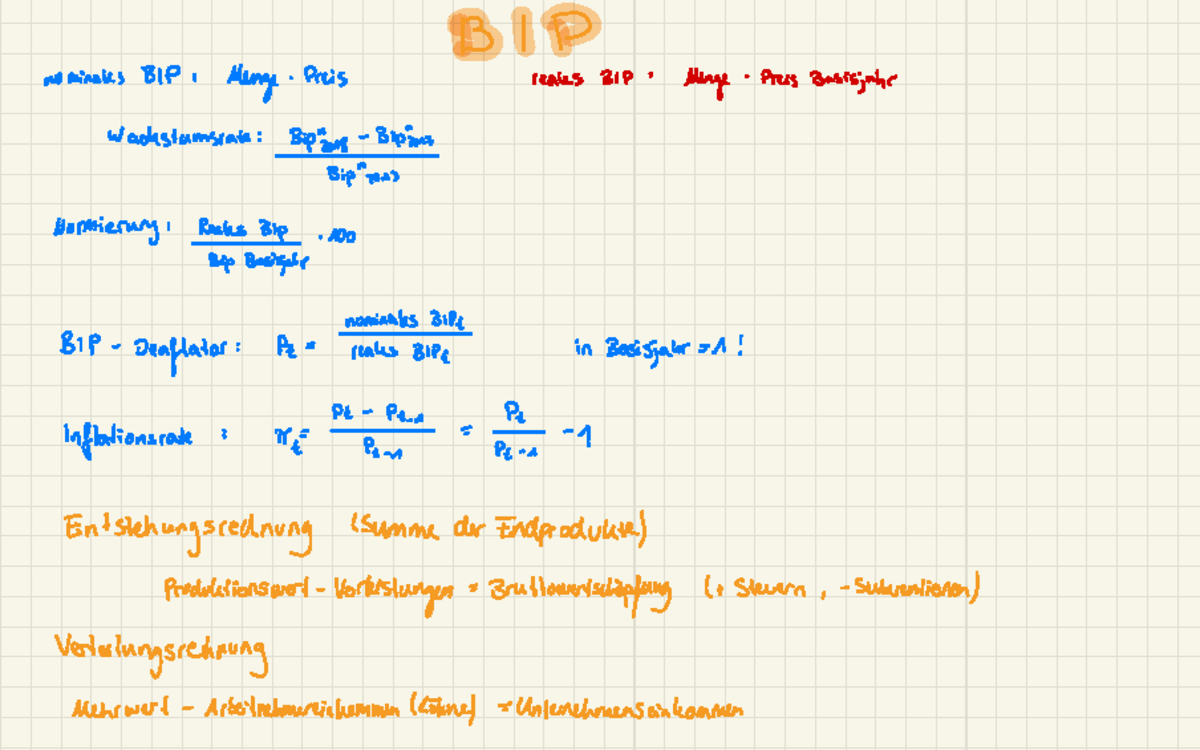 BIP
nominales BIP: Menge · Preis
reales BIP: Menge · Preis Basisjahr
Wachstumsrate:
Bip^n - Bip^n
Bip^n
Normierung: Reales Bip / Bip Basisjahr · 100
BIP - Deaflator: P_t = nominales BIP_t / reales BIP_t
in Basisjahr = 1!
Inflationsrate: π_t = P_t - P_t-1 / P_t-1 = P_t / P_t-1 - 1
Entstehungsrechnung (Summe der Endprodukte)
Produktionswert - Vorleistungen = Bruttowertschöpfung (+ Steuern, - Subventionen)
Verteilungsrechnung
Mehrwert - Arbeitnehmereinkommen (Löhne) = Unternehmenseinkommen